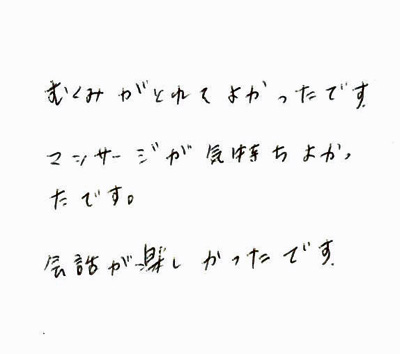 むくみがとれてよかったです
マッサージが気持ちよかっ
たです。
会話が楽しかったです